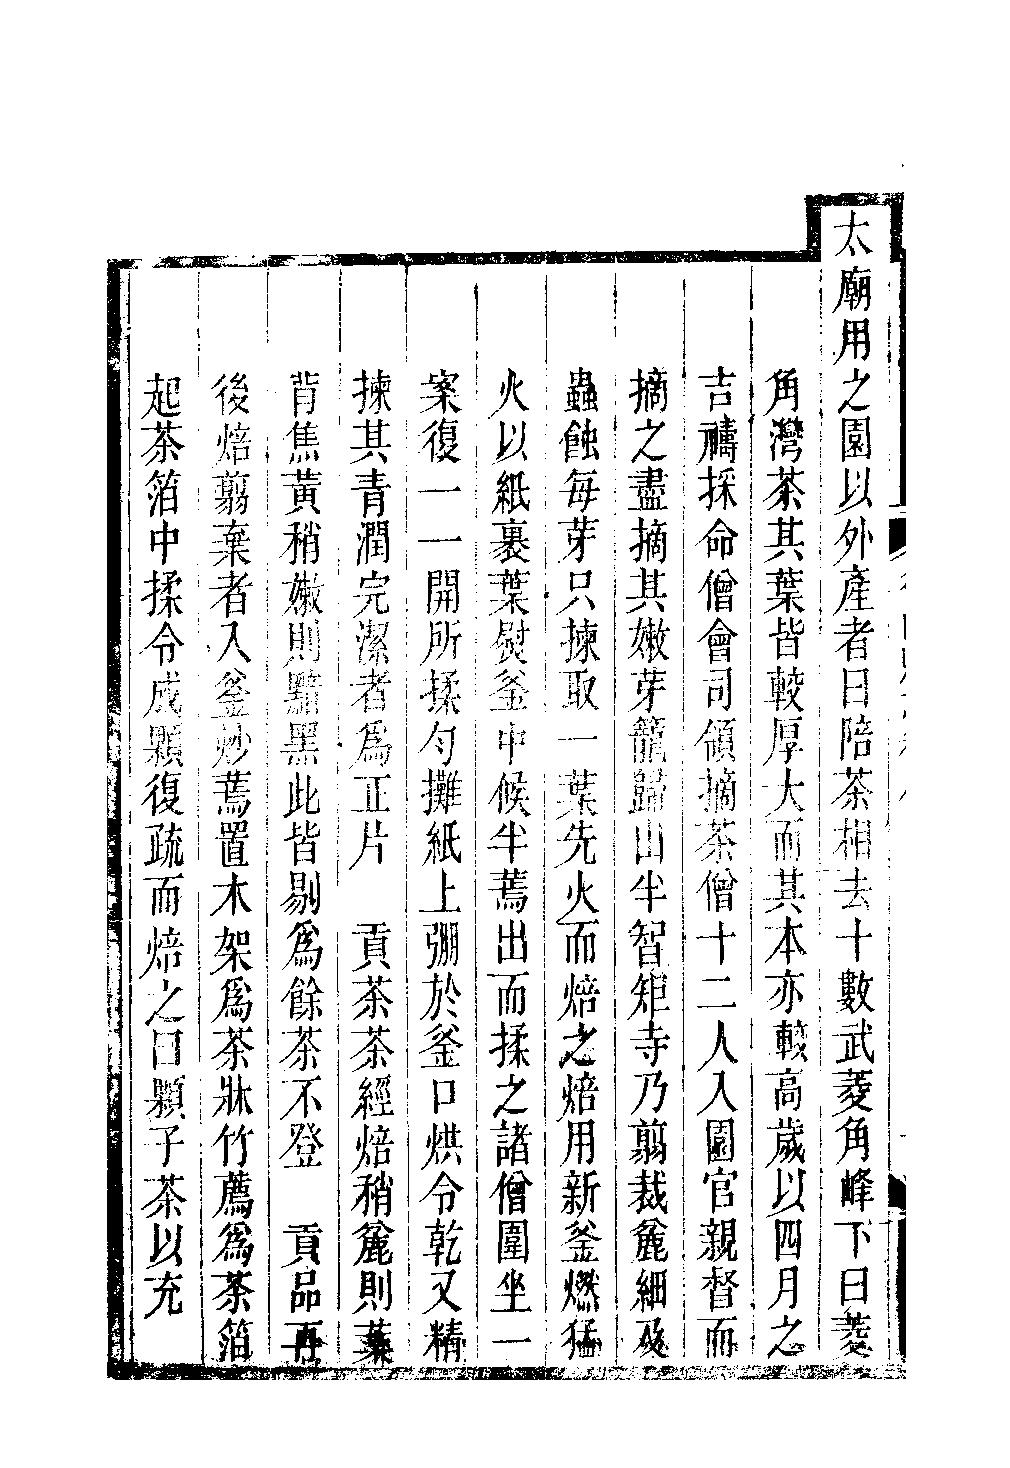 太廟用之園以外產者曰陪茶相去十數武菱角峰下曰菱
角灣茶其葉皆較厚大而其本亦較高歲以四月之
吉禱採命僧會司領摘茶僧十二人入園官親督而
摘之盡摘其嫩芽籠歸山半智矩寺乃翦裁麄細及
蟲蝕每芽只揀取一葉先火而焙之焙用新釜燃猛
火以紙裹葉熨釜中候半蔫出而揉之諸僧圍坐一
案復一一開所揉勻攤紙上弸於釜口烘令乾又精
揀其青潤完潔者為正片　貢茶茶經焙稍麄則葉
背焦黃稍嫩則黯黑此皆剔為餘茶不登　貢品再
後焙翦棄者入釜炒蔫置木架為茶牀竹薦為茶箔
起茶箔中揉令成顆復疏而焙之曰顆子茶以充